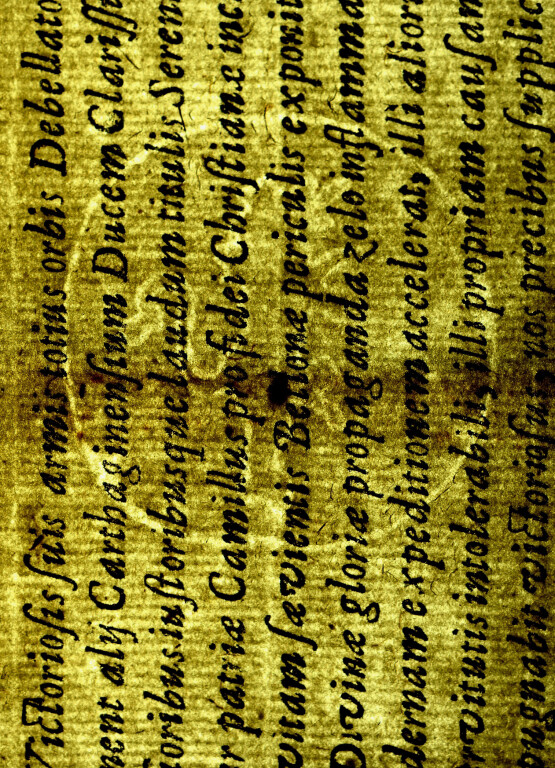 Victoriosis suis armis totius orbis Debellato
nent alij Carthaginensium Ducem Clariss
toribus inustoribusque laudam titulis Seren
r patriæ Camillus pro fidei Christianæ inc
vitam sævientis Bellonæ periculis exponit
Divinæ gloriæ propaganda zelo inflamma
dernam expeditionem accelerat, illi alior
rvitutis intolerabili, illi propriam causam
ugnabit victoriosus, vos precibus supplic